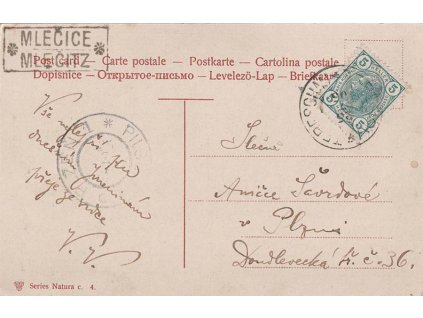 MLEČICE
MLEČITZ
Post card - Carte postale - Postkarte - Cartolina postale
Dopisnice - Открытое-письмо - Levelező-Lap - Briefkaart
5 5
5 5
PIL
Vše nejlepší ku
dnešním jmeninám
přeje ze srdce
V. V.
Slečna
v Plzni
Doudlevecká tř. č. 36.
Series Natura c. 4.